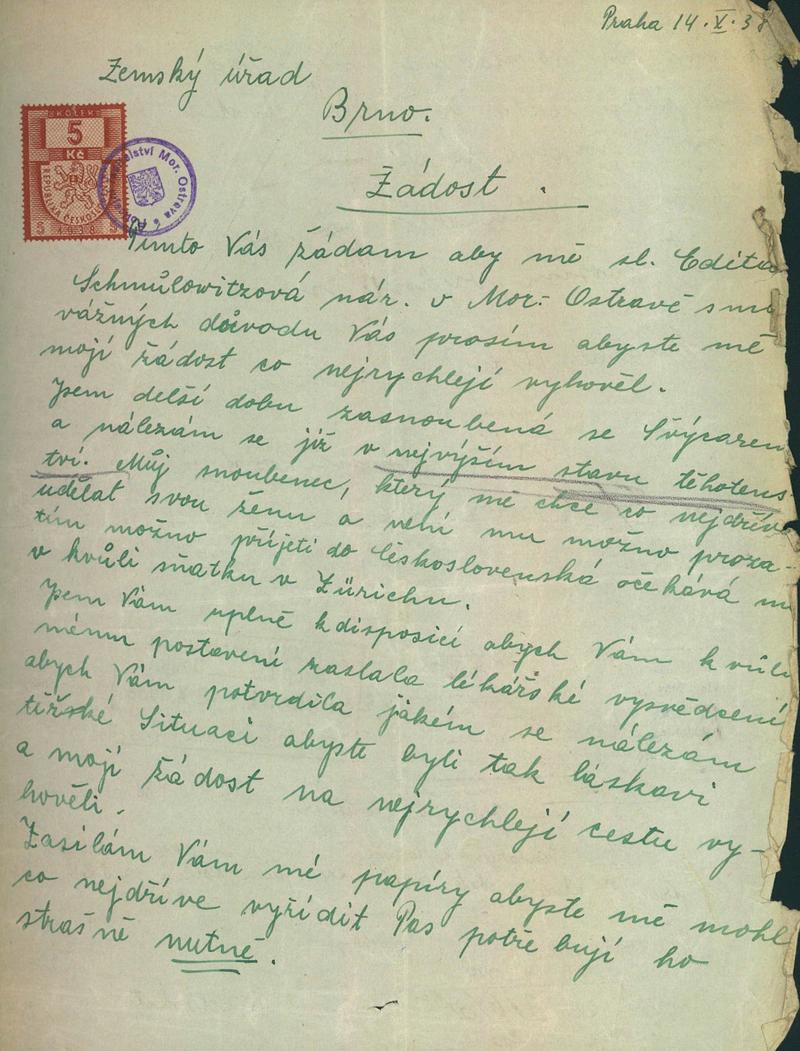 Praha 14.X.38
Zemský úřad
Brno.
KOLEK
5
Kč
5 1938
Mor. Ostrava
Žádost.
Tímto Vás žádám aby mě sl. Edita
Schmulowitzová nár. v Mor. Ostravě
vážných důvodu Vás prosím abyste mě
mojí žádost co nejrychlejí vyhověl.
Jsem delší dobu zasnoubená se Švýcarem
a nálezám se již v nejvýším stavu těhotens-
tví. Můj snoubenec, který mě chce co nejdřív
udělat svou ženu a není mu možno proza-
tím možno příjeti do Československá očekává
v kvůli sňatku v Zürichu.
Jsem Vám uplně kdisposicí abych Vám kvůli
mému postavení zaslala lékářské vysvědcení
abych Vám potvrdila jakém se nálezám
tížské Situaci abyste byli tak láskavi
a mojí žádost na nejrychlejí cestu vy-
hověli.
Zasílám Vám mé papíry abyste mě mohl
co nejdříve vyřídit Pas potřebují ho
strašně nutně.